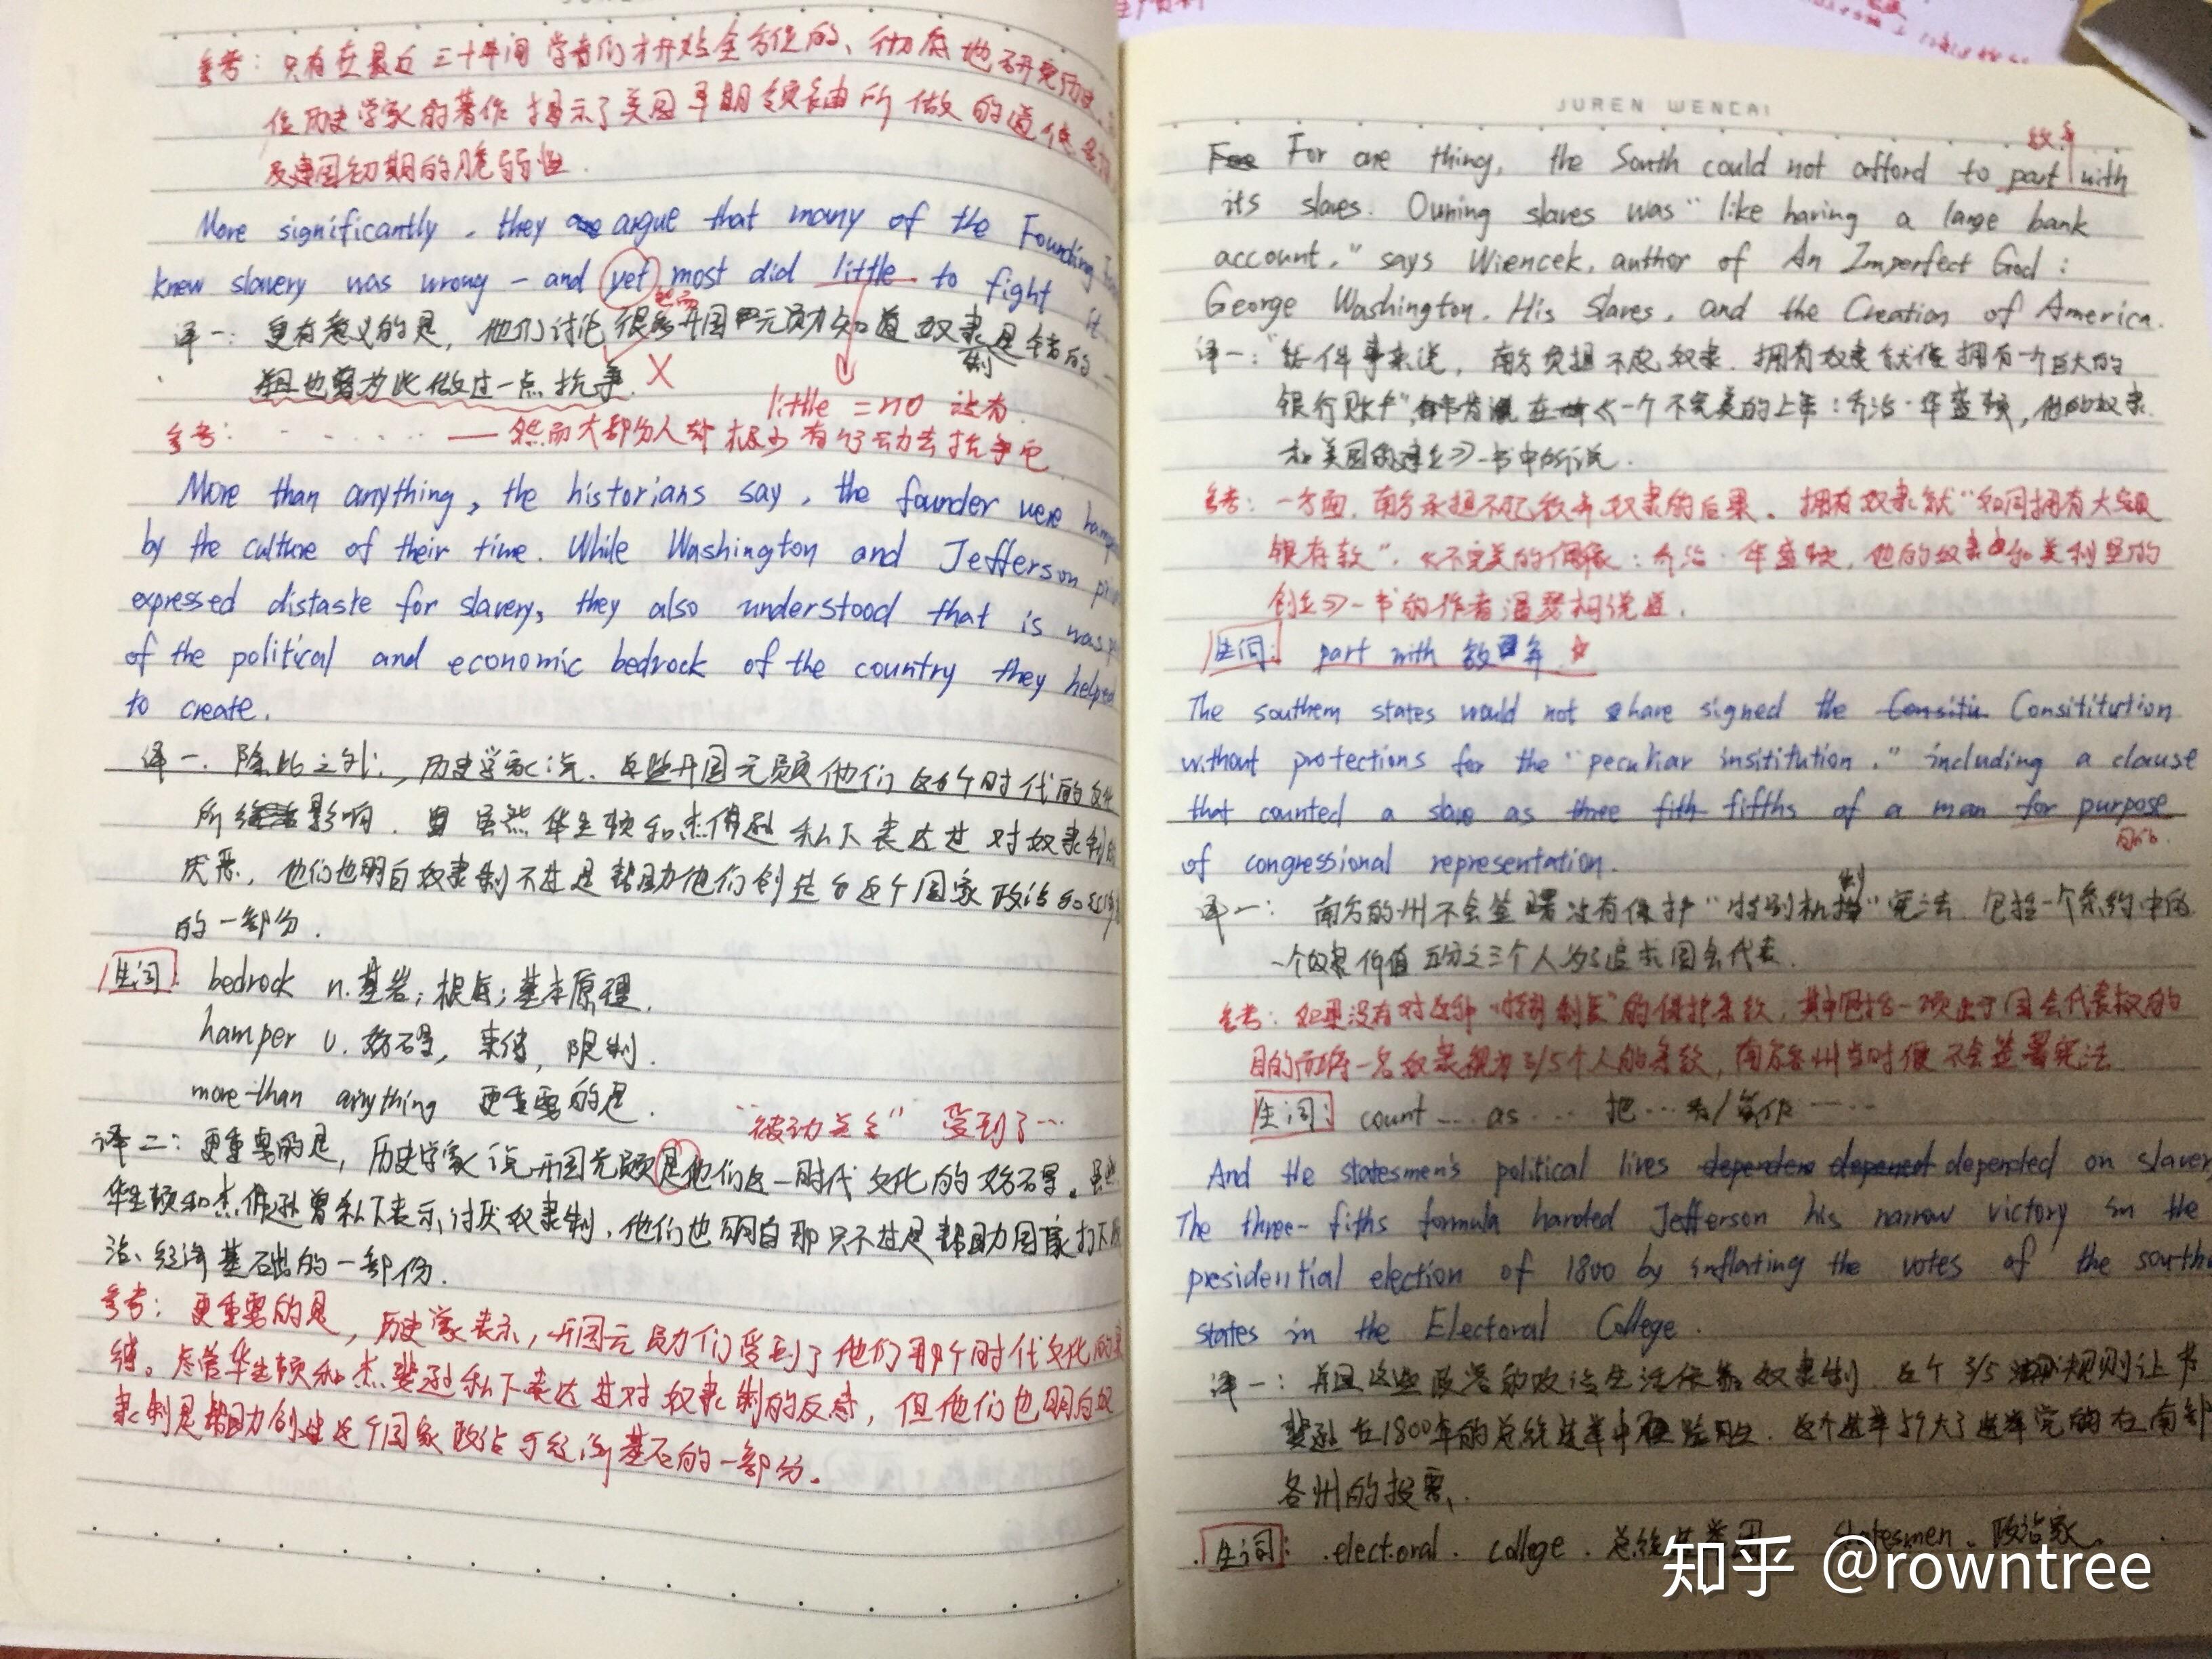 参考：只有在最近三十年间学者们才开始全方位的、彻底地研究历史
位历史学家的著作揭示了美国早期领袖所做的道德
及建国初期的脆弱性.
More significantly, they argue that many of the Founding
knew slavery was wrong - and yet most did little to fight it.
然而
译一：更有意义的是，他们讨论很多开国元勋知道奴隶制是错的
但也曾为此做过一点抗争. X
little = no 没有
参考：······——然而大部分人却极少有行动去抗争它
More than anything, the historians say, the founder were hamp
by the culture of their time. While Washington and Jefferson pri
expressed distaste for slavery, they also understood that is was p
of the political and economic bedrock of the country they helped
to create.
译一. 除此之外，历史学家说、这些开国元勋他们这个时代的文化
所影响. 虽然华盛顿和杰佛逊私下表达过对奴隶制的
厌恶，他们也明白奴隶制不过是帮助他们创造出这个国家政治和经济
的一部分.
生词: bedrock n.基岩；根底；基本原理.
hamper v. 妨碍，束缚，限制.
more than anything 更重要的是.
"被动关系" 受到了…
译二：更重要的是，历史学家说开国元勋是他们这一时代文化的妨碍。虽然
华盛顿和杰佛逊曾私下表示讨厌奴隶制，他们也明白那只不过是帮助国家打下政
治、经济基础的一部份.
参考：更重要的是，历史学家表示，开国元勋们受到了他们那个时代文化的束
缚。尽管华盛顿和杰斐逊私下表达过对奴隶制的反感，但他们也明白奴
隶制是帮助创建这个国家政治与经济基石的一部分。
JUREN WENCAI
放弃
For one thing, the South could not afford to part with
its slaves. Owning slaves was "like having a large bank
account," says Wiencek, author of An Imperfect God:
George Washington, His Slaves, and the Creation of America.
译一：一件事来说，南方负担不起奴隶. 拥有奴隶就像"拥有一个巨大的
银行账户",在《一个不完美的上帝：乔治·华盛顿，他的奴隶
和美国的建立》一书中所说.
参考：一方面，南方承担不起放弃奴隶的后果。拥有奴隶就"如同拥有大额
银行存款"，《不完美的偶像：乔治·华盛顿，他的奴隶和美利坚的
创立》一书的作者温瑟柯说道.
生词: part with 放弃
The southern states would not have signed the Consititution
without protections for the "peculiar insititution," including a clause
that counted a slave as three fifths of a man for purpose
目的
of congressional representation.
译一：南方的州不会签署没有保护"特别机制"宪法. 包括一个条约中的
一个奴隶价值五分之三个人为了追求国会代表.
参考：如果没有对这种"特别制度"的保护条款，其中包括一项出于国会代表权的
目的而将一名奴隶视为3/5个人的条款，南方各州当时便不会签署宪法.
生词: count … as … 把…看/算作……
And the statesmen's political lives depended on slavery
The three-fifths formula handed Jefferson his narrow victory in the
presidential election of 1800 by inflating the votes of the south
states in the Electoral College.
译一：并且这些政客的政治生活依靠奴隶制. 这个3/5规则让杰
斐逊在1800年的总统选举中险胜. 这个选举扩大了选举党的在南部
各州的投票.
生词: electoral college. 总统选举团 statesmen. 政治家.
知乎 @rowntree